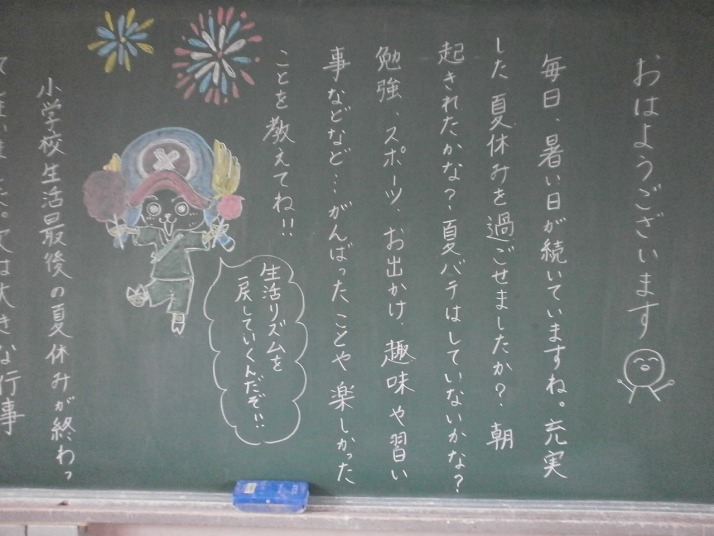 おはようございます
毎日、暑い日が続いていますね。充実
した夏休みを過ごせましたか？朝
起きれたかな？夏バテはしていないかな？
勉強、スポーツ、お出かけ、趣味や習い
事などなど…がんばったことや楽しかった
ことを教えてね!!
生活リズムを
戻していくんだぞ!!
小学校生活最後の夏休みが終わっ
てしまいました。次は大きな行事